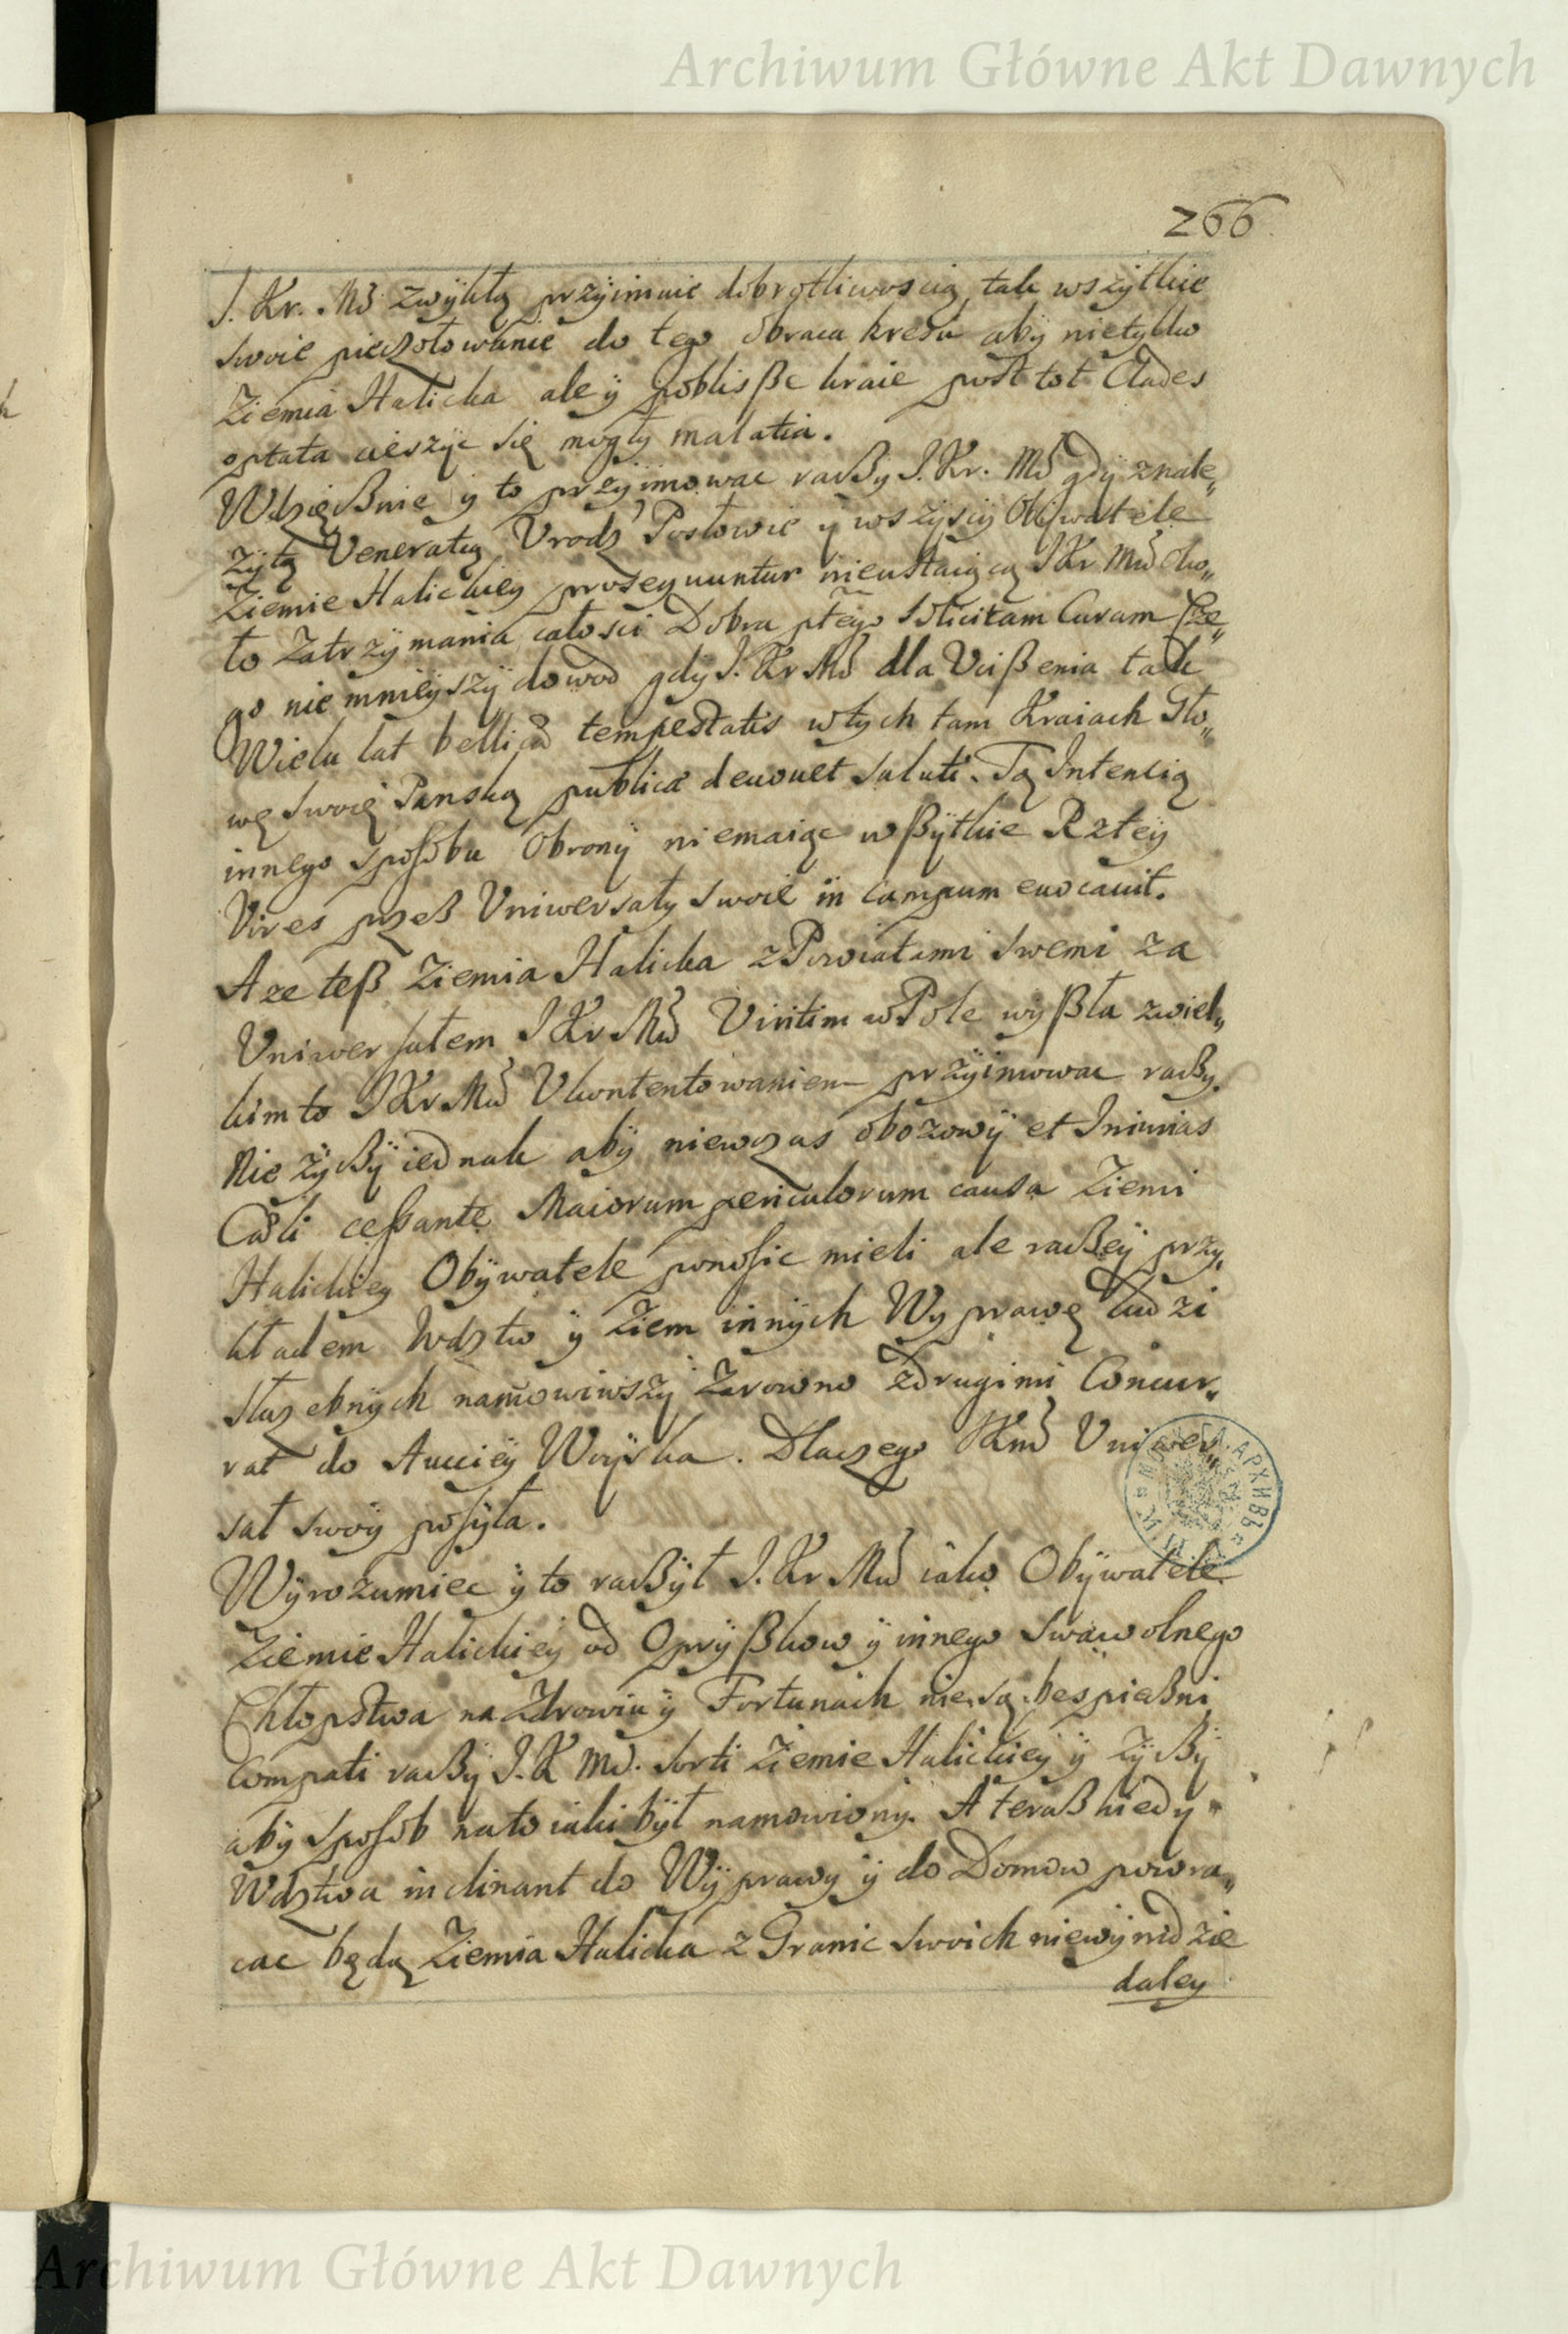 Archiwum Główne Akt Dawnych
266
J. Kr. Mć zwykłą przyimuie dobrotliwoscią, tak wszytkie
swoie pieczołowanie do tego obraca kresu aby nietylko
Ziemia Halicka ale y poblisße kraie post tot Clades
optata cieszyc się mogły malatia.
Wdzięßnie y to przyimowac raczy J. Kr. Mć gdy znale„
zytą Veneratią Urodz Posłowie y wszyscy Obywatele
Ziemie Halickiey prosequuntur nieustaiącą JKr Mći oko„
ło zatrzymania całosci Dobra płego solicitam Curam Cze„
go nie mnieyszy dowod gdy J. Kr Mć dla Ucißenia tak
Wielu lat bellicæ tempestatis w tych tam Kraiach Gło„
wę swoię Panską publicæ deuouet saluti. Tą Intencią
innego sposobu Obrony niemaiąc wßytkie Rztey
Vires przeß Vniwersały swoie in campum euocauit.
A ze teß Ziemia Halicka z Powiatami swemi za
Vniwersałem JKr Mći Viritim w Pole wyßła z wiel„
kim to JKr Mć Vkontentowaniem przyimowac raczy.
Nie życzy iednak aby niewczas obozowy et Iniurias
Cœli ceßante Maiorum periculorum causa Ziemi
Halickiey Obywatele ponosic mieli ale raczey przy„
kładem Wdztw y Ziem innych Wyprawę ludzi
służebnych namowiwszy zarowno z drugimi Concur„
rat do Aucciey Woyska. Dlaczego JKMć Vniwer„
sał swoy posyła.
Wyrozumiec y to raczył J. Kr Mć iako Obywatele
Ziemie Halickiey od Opryßkow y innego swawolnego
Chłopstwa na Zdrowiu y Fortunach nie są bespieczni
Compati raczy J. K Mć. sorti Ziemie Halickiey y życzy
aby sposob na to iaki był namowiony. A teraß kiedy
Wdztwa inclinant do Wyprawy y do Domow powra„
cac będą Ziemia Halicka z Granic swoich niewynidzie
daley
Archiwum Główne Akt Dawnych